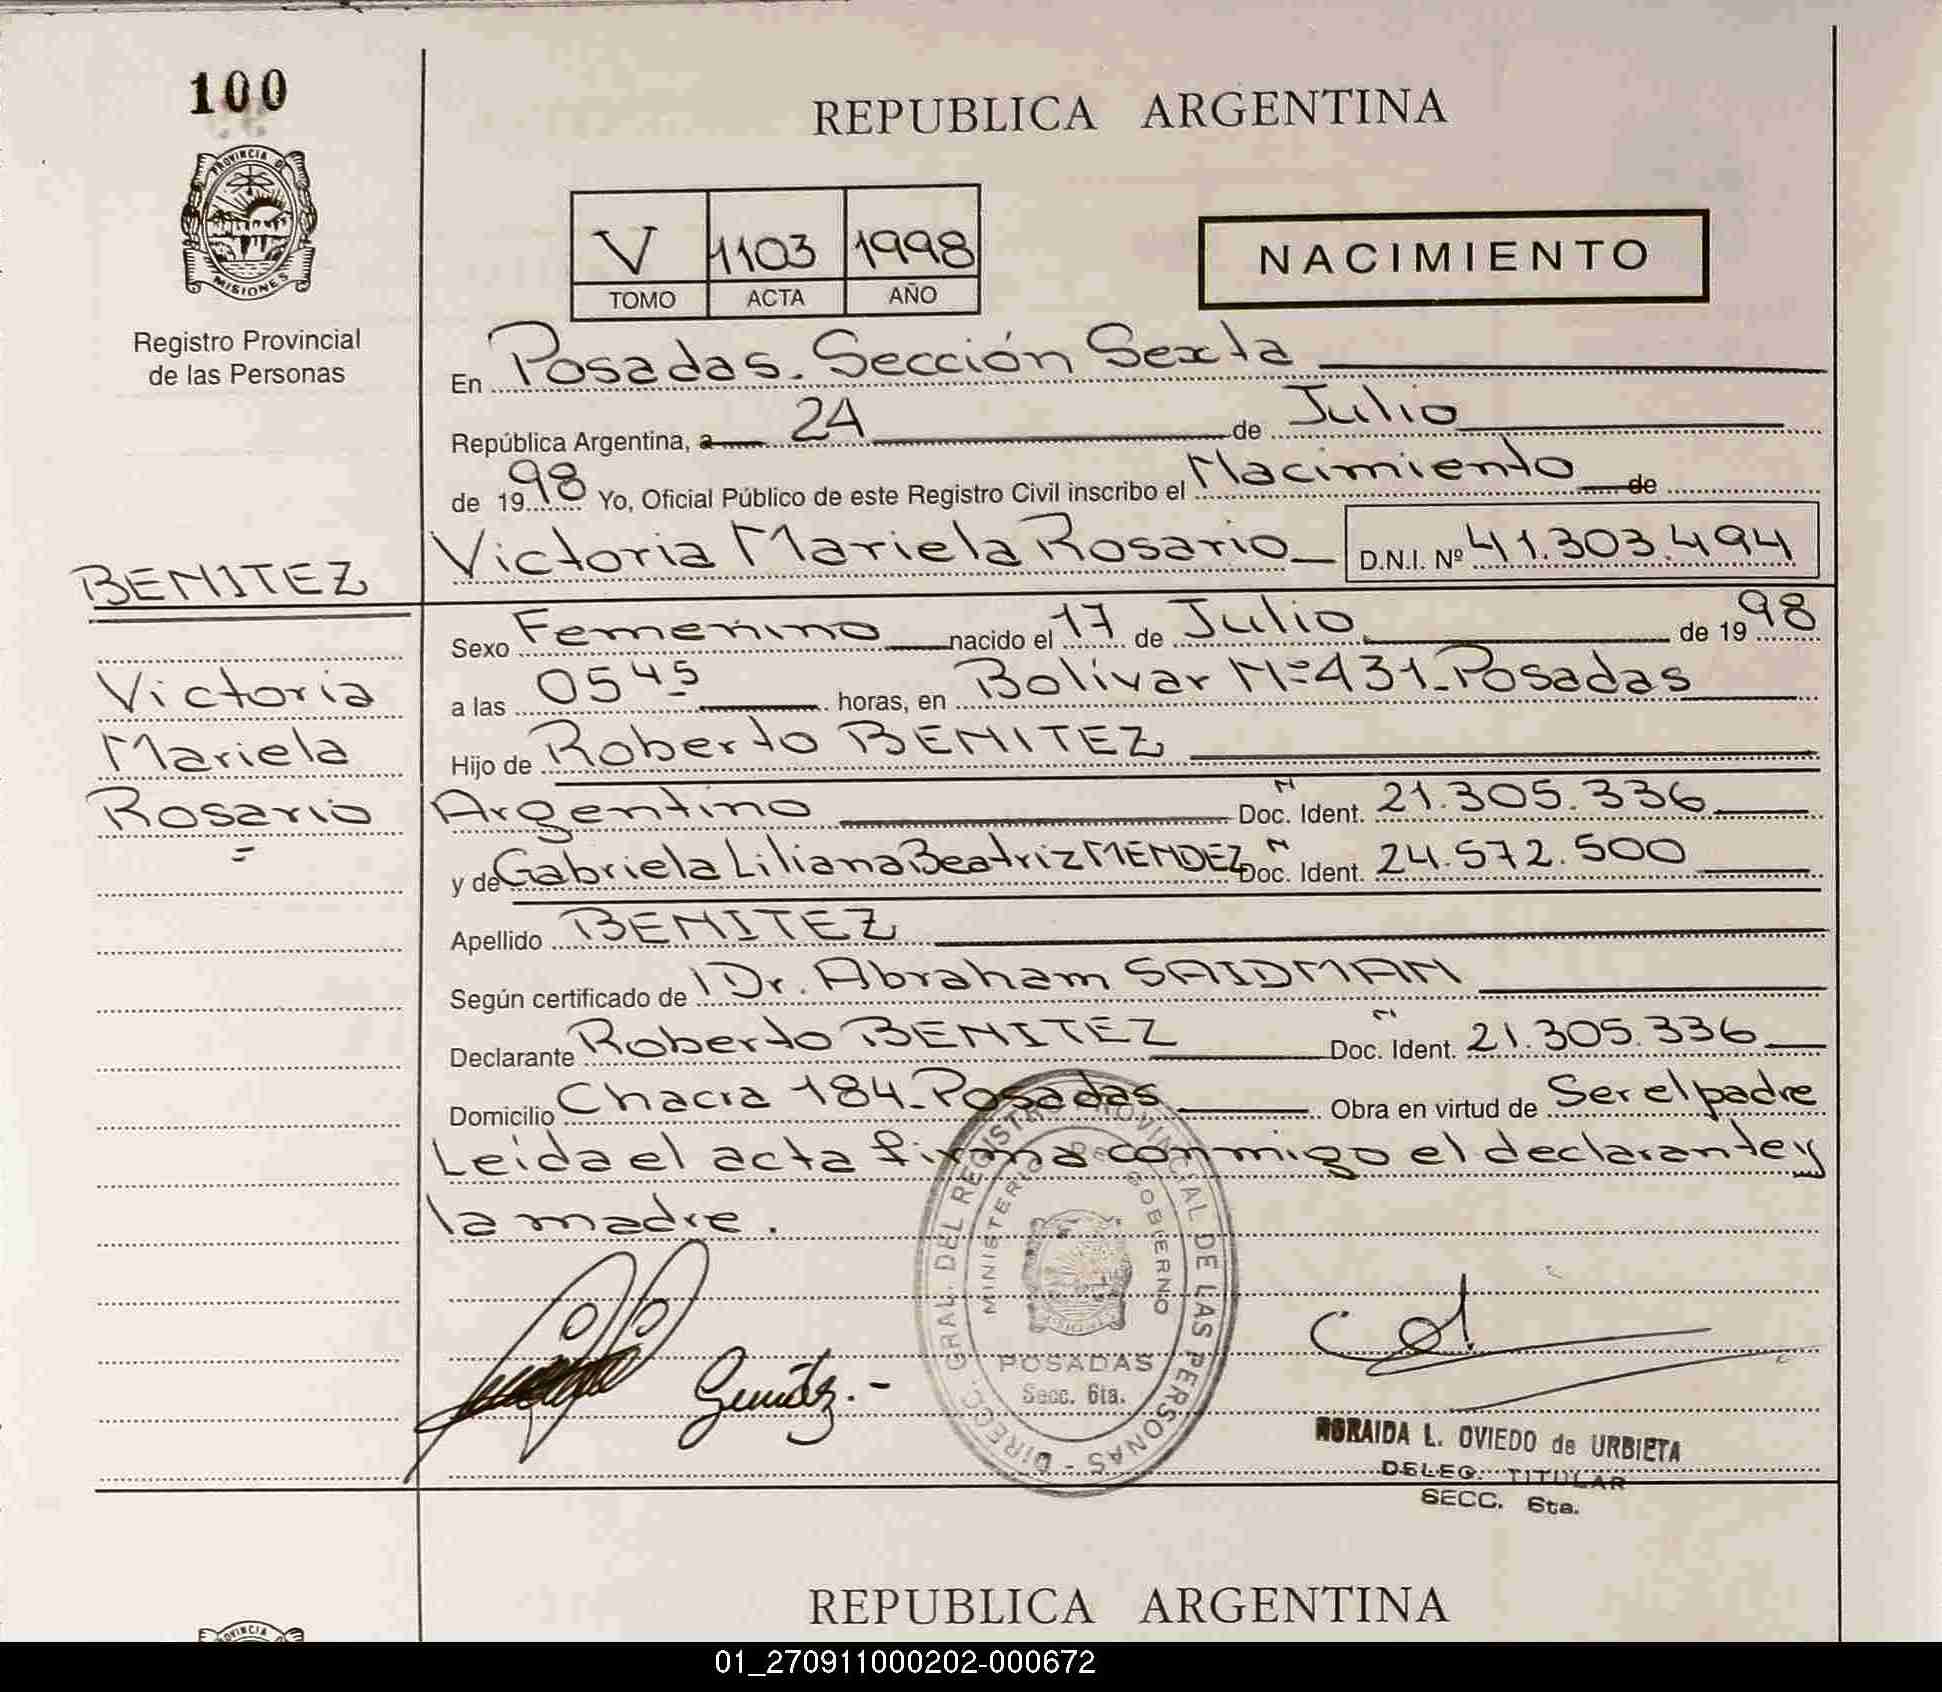 100
PROVINCIA DE
MISIONES
Registro Provincial
de las Personas
REPUBLICA ARGENTINA
V 1103 1998
TOMO ACTA AÑO
NACIMIENTO
En Posadas. Sección Sexta
República Argentina, a 24 de Julio
de 1998 Yo, Oficial Público de este Registro Civil inscribo el Nacimiento de
Victoria Mariela Rosario D.N.I. Nº 41.303.494
BENITEZ
Victoria
Mariela
Rosario
Sexo Femenino nacido el 17 de Julio de 1998
a las 0545 horas, en Bolívar Nº 431_Posadas
Hijo de Roberto BENITEZ
Argentino N Doc. Ident. 21.305.336
y de Gabriela Liliana Beatriz MENDEZ N Doc. Ident. 24.572.500
Apellido BENITEZ
Según certificado de Dr. Abraham SAIDMAN
Declarante Roberto BENITEZ N Doc. Ident. 21.305.336
Domicilio Chacra 184_Posadas Obra en virtud de Ser el padre
Leída el acta firma conmigo el declarante y
la madre.
DIRECC. GRAL. DEL REGISTRO PROVINCIAL DE LAS PERSONAS -
MINISTERIO DE GOBIERNO
POSADAS
Secc. 6ta.
NORAIDA L. OVIEDO de URBIETA
DELEG. TITULAR
SECC. 6ta.
REPUBLICA ARGENTINA
PROVINCIA
01_270911000202-000672